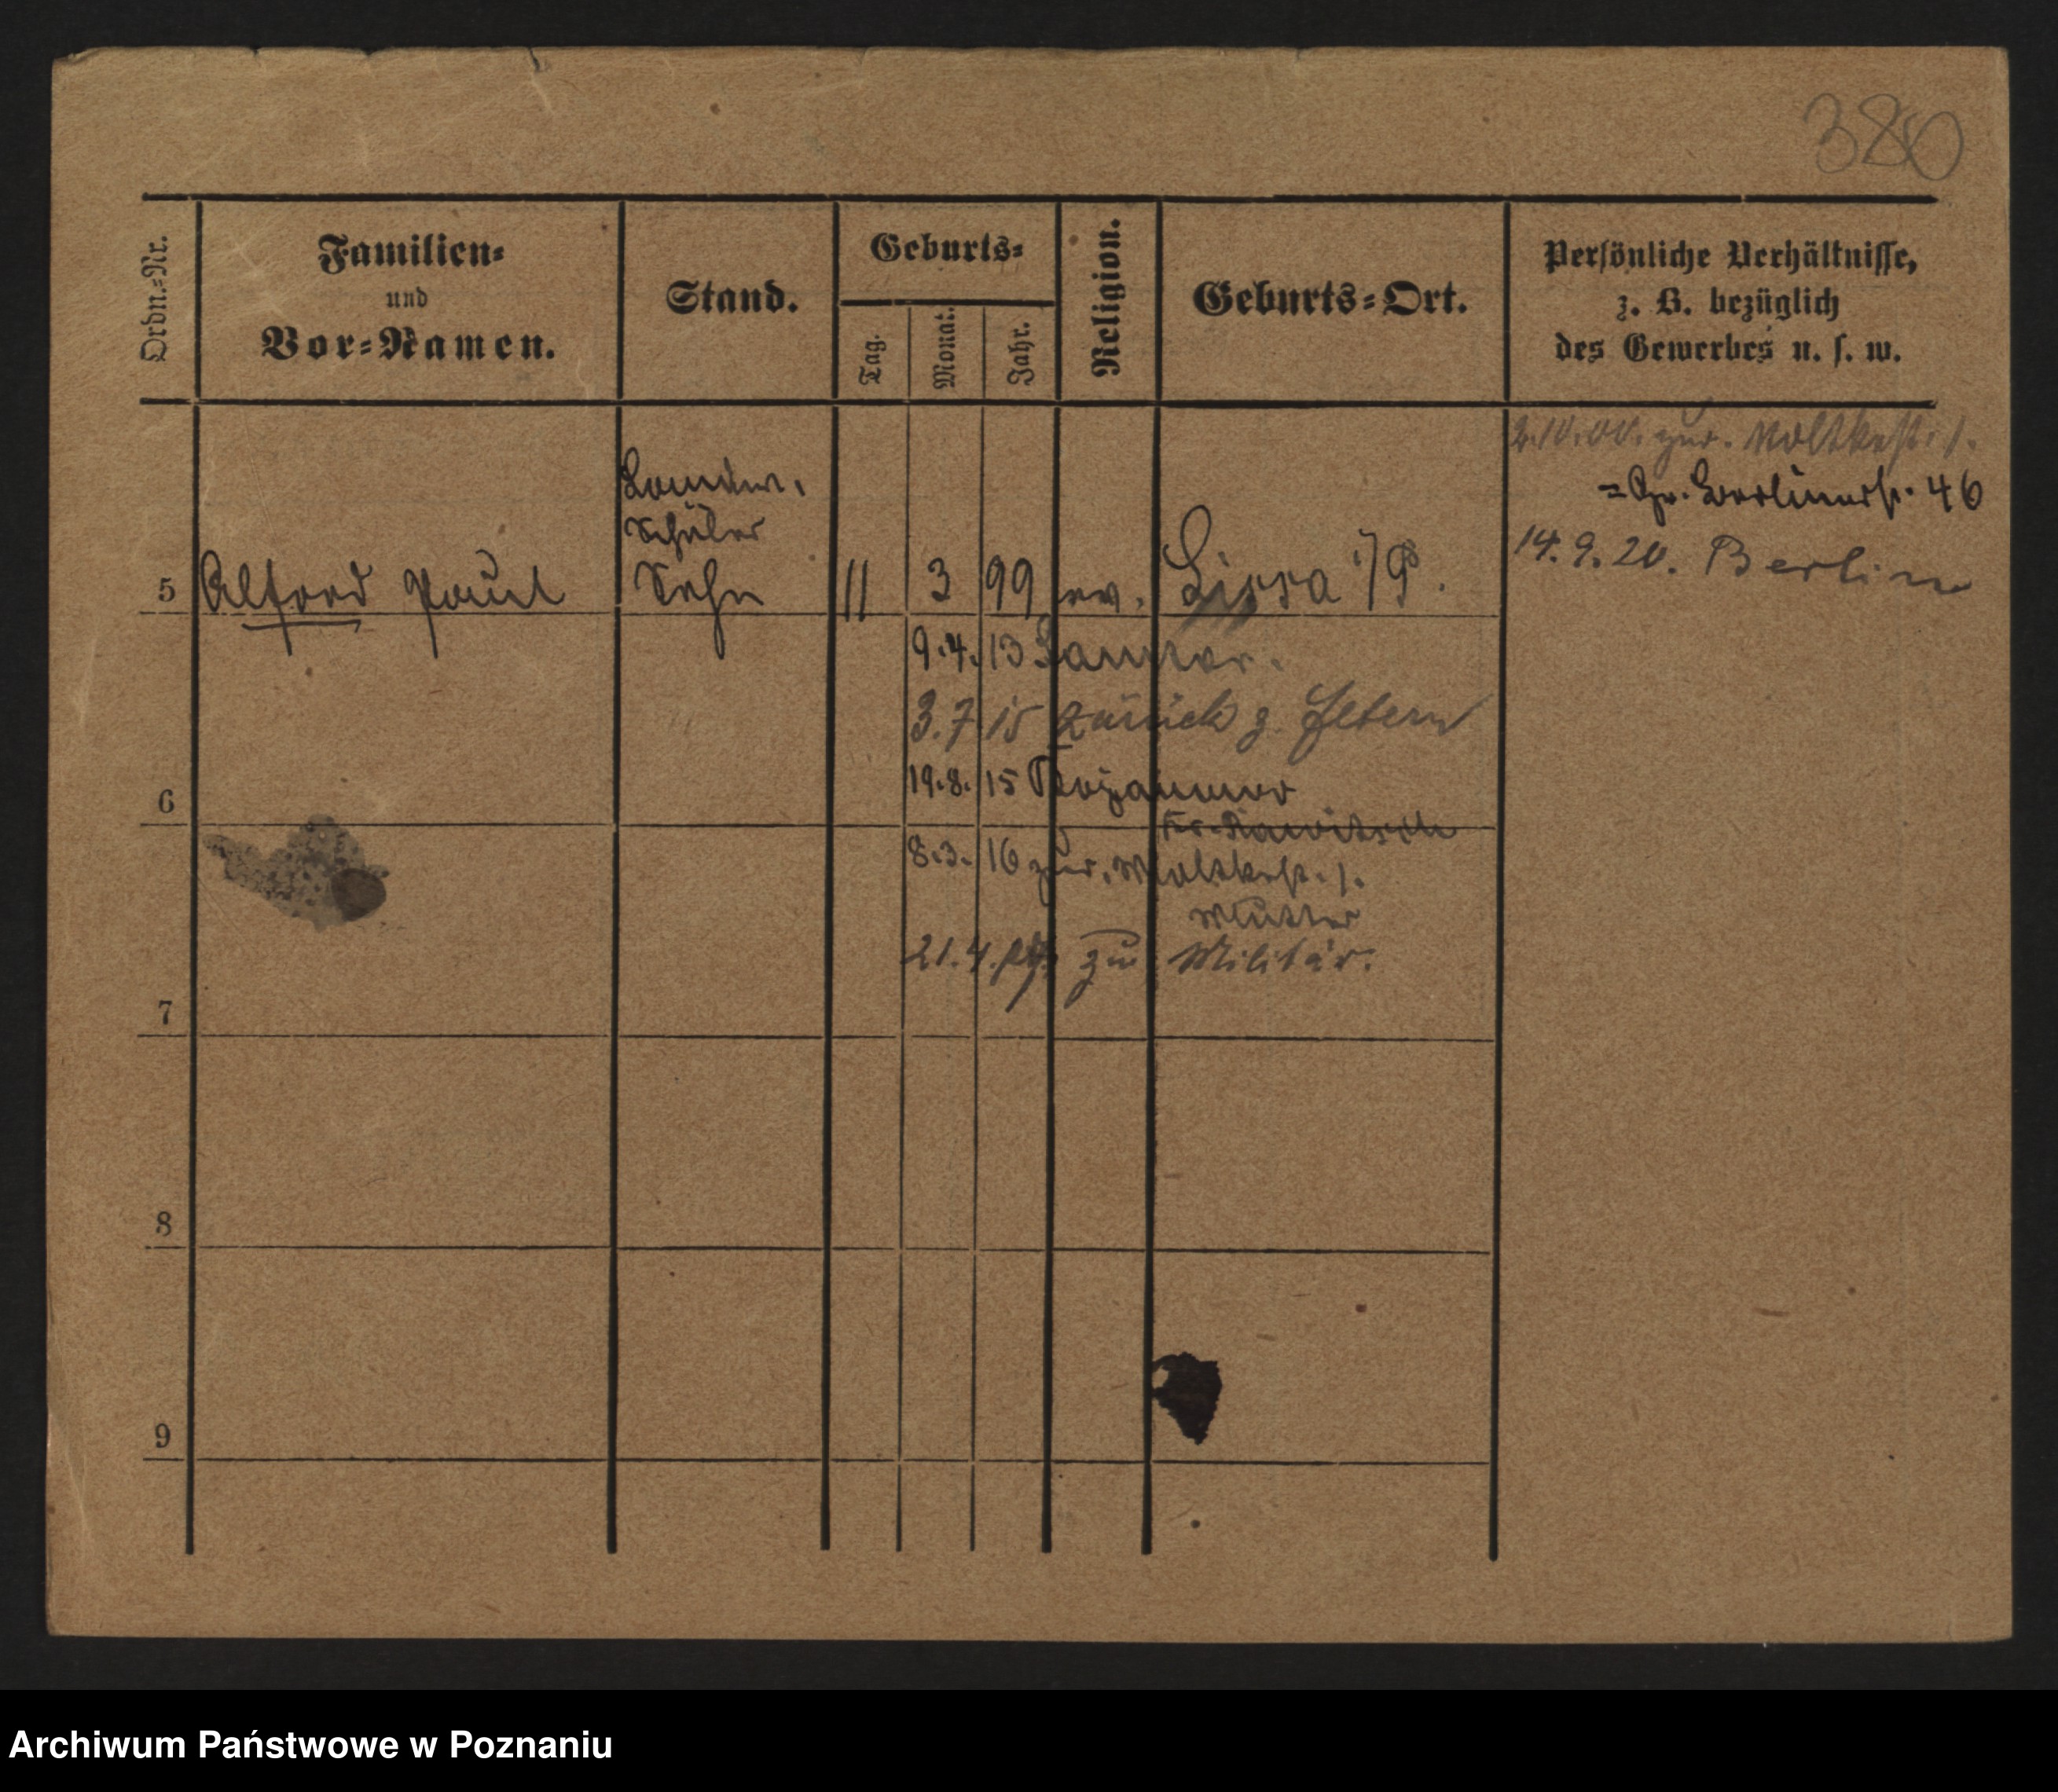 380
Ordn.=Nr.
Familien=
und
Vor=Namen.
Stand.
Geburts=
Tag.
Monat.
Jahr.
Religion.
Geburts=Ort.
Persönliche Verhältnisse,
z. B. bezüglich
des Gewerbes u. s. w.
zur. Moltkestr. 1.
= Gr. Berlinerstr. 46
14. 9. 20. Berlin
Schüler
5 Alfred Paul Sohn 11 3 99 ev. Lissa i/P.
9.4. 13
3. 7 15 zurück z. Eltern
19.8. 15 Bojanowo
6 Kr. Rawitsch
8.3. 16 zur. Moltkestr. 1.
Mutter
21. 4. zum Militär.
7
8
9
Archiwum Państwowe w Poznaniu